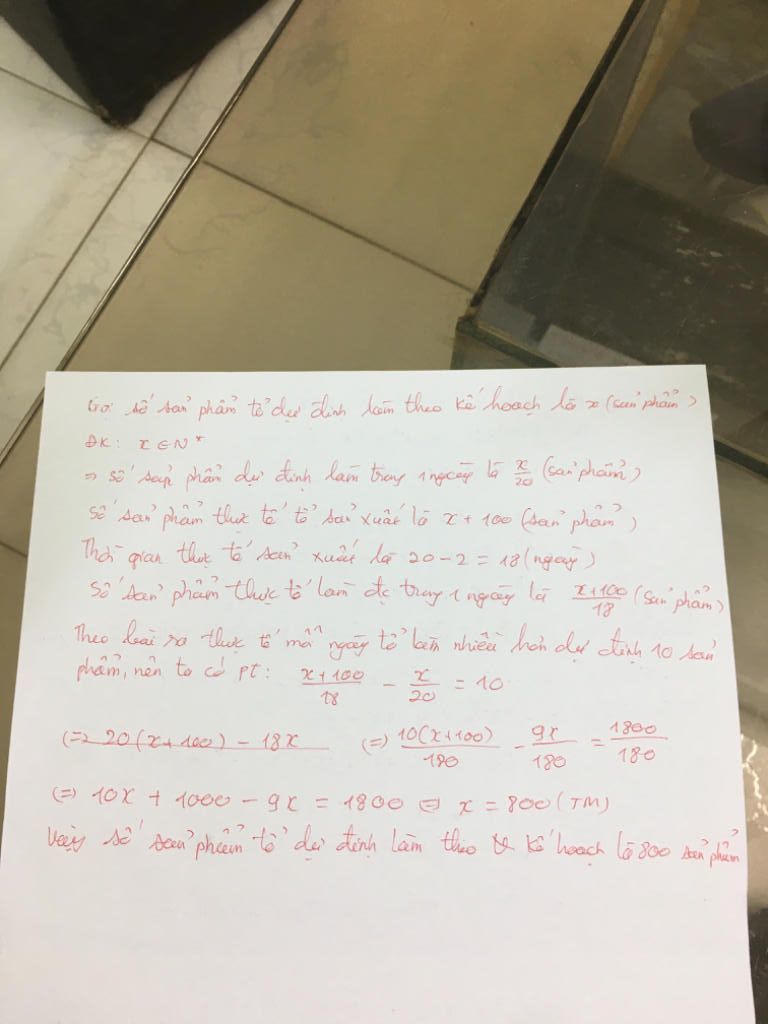 Gọi số sản phẩm tổ dự định làm theo kế hoạch là x (sản phẩm)
ĐK: x ∈ N*
⇒ số sản phẩm dự định làm trong 1 ngày là x/20 (sản phẩm)
Số sản phẩm thực tế tổ sản xuất là x + 100 (sản phẩm)
Thời gian thực tế sản xuất là 20 - 2 = 18 (ngày)
Số sản phẩm thực tế làm đc trong 1 ngày là (x+100)/18 (sản phẩm)
Theo bài ra thực tế mỗi ngày tổ làm nhiều hơn dự định 10 sản
phẩm, nên ta có pt: (x+100)/18 - x/20 = 10
(=) 20(x+100) - 18x (=) 10(x+100)/180 - 9x/180 = 1800/180
(=) 10x + 1000 - 9x = 1800 (=) x = 800 (TM)
Vậy số sản phẩm tổ dự định làm theo kế hoạch là 800 sản phẩm